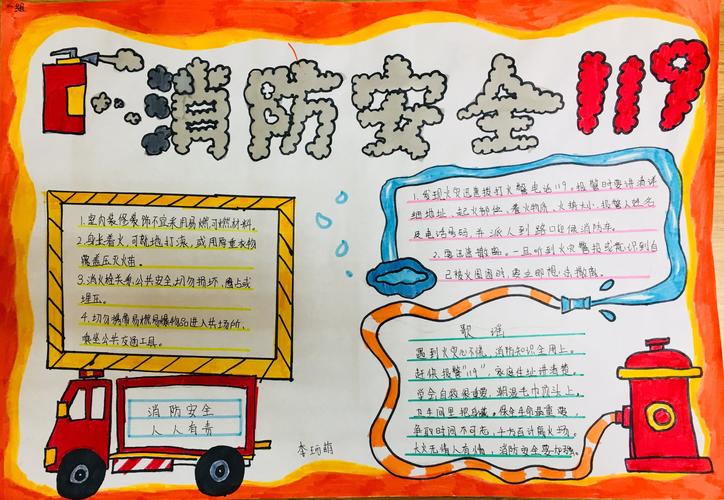 一组
消防安全119
1.室内装修装饰不宜采用易燃可燃材料。
2.身上着火,可就地打滚,或用厚重衣物
覆盖压灭火苗。
3.消火栓关系公共安全,切勿损坏、圈占或
埋压。
4.切勿携带易燃易爆物品进入公共场所、
乘坐公共交通工具。
1.发现火灾迅速拨打火警电话119。报警时要讲清详
细地址、起火部位、着火物质、火势大小、报警人姓名
及电话号码,并派人到路口迎候消防车。
2.要迅速撤离。一旦听到火灾警报或意识到自
己被火围困时,要立即想法撤离。
歌谣
遇到火灾心不慌,消防知识全用上。
赶快报警"119",家庭住址讲清楚。
学会自救很重要,潮湿毛巾
保全生命最重要
争取时间不可忘,
火火无情人有情,消防安全要加强。
消防安全
人人有责